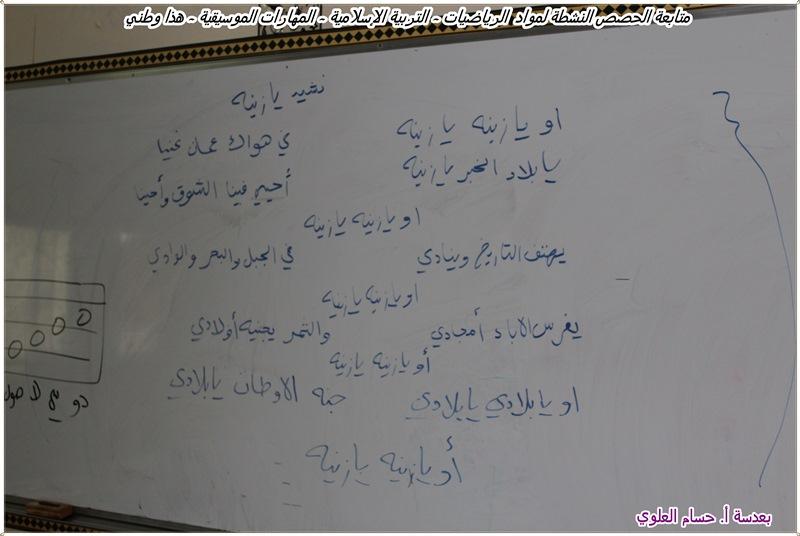 متابعة الحصص النشطة لمواد الرياضيات - التربية الإسلامية - المهارات الموسيقية - هذا وطني
نشيد يا زينه
او يا زينه يا زينه في هواك عمان غنينا
يا بلاد الخير يا زينه أحييي فينا الشوق وأحينا
او يا زينه يا زينه
يهتف التاريخ وينادي في الجبل والبحر والوادي
او يا زينه يا زينه
يغرس الاباء أمجادي والثمر يجنيه أولادي
أو يا زينه يا زينه
او يا بلادي يا بلادي جنه الاوطان يا بلادي
أو يا زينه يا زينه
دو
لا
بعدسة أ. حسام العلوي